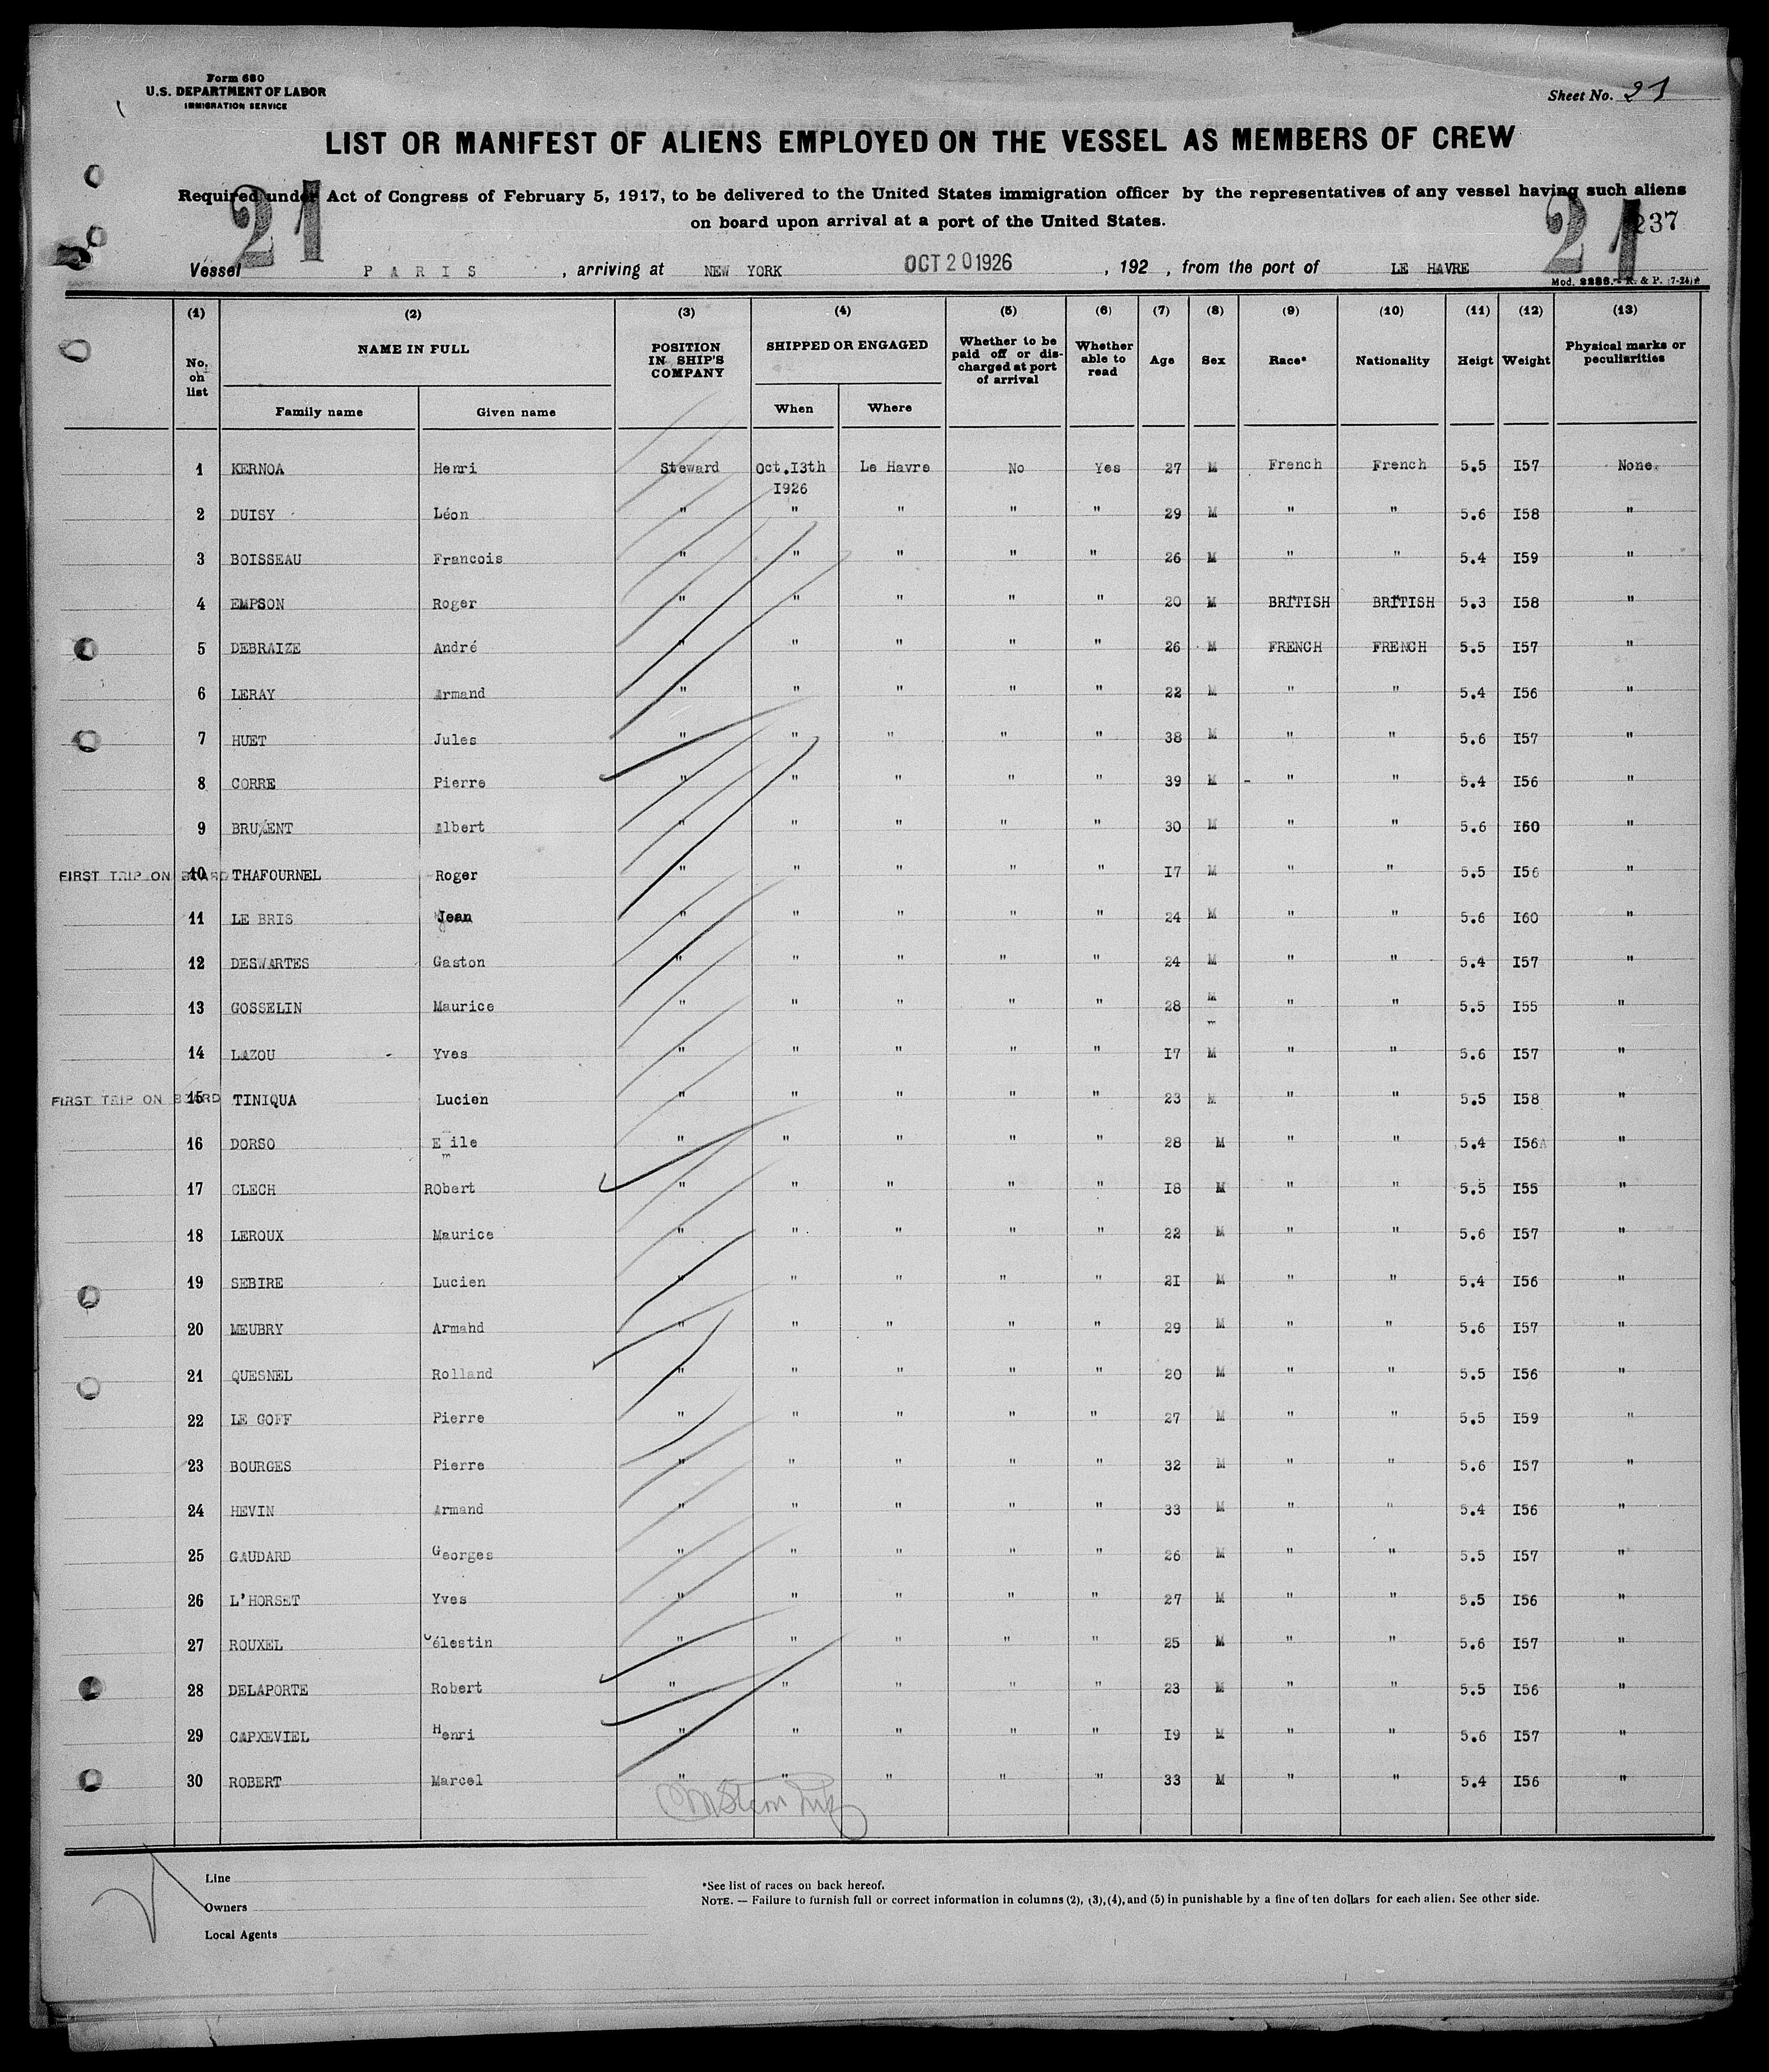 Form 680
U.S. DEPARTMENT OF LABOR
IMMIGRATION SERVICE
Sheet No. 21
LIST OR MANIFEST OF ALIENS EMPLOYED ON THE VESSEL AS MEMBERS OF CREW
Required under Act of Congress of February 5, 1917, to be delivered to the United States immigration officer by the representatives of any vessel having such aliens
on board upon arrival at a port of the United States.
21 21 237
Vessel PARIS , arriving at NEW YORK OCT 20 1926 , 192 , from the port of LE HAVRE
Mod. 2286. - R. & P. (7-24)
(1) (2) (3) (4) (5) (6) (7) (8) (9) (10) (11) (12) (13)
No. on list NAME IN FULL Family name Given name POSITION IN SHIP'S COMPANY SHIPPED OR ENGAGED When Where Whether to be paid off or discharged at port of arrival Whether able to read Age Sex Race* Nationality Heigt Weight Physical marks or peculiarities
1 KERNOA Henri Steward Oct.I3th I926 Le Havre No Yes 27 M French French 5.5 I57 None.
2 DUISY Léon " " " " " 29 M " " 5.6 I58 "
3 BOISSEAU Francois " " " " " 26 M " " 5.4 I59 "
4 EMPSON Roger " " " " " 20 M BRITISH BRITISH 5.3 I58 "
5 DEBRAIZE André " " " " " 26 M FRENCH FRENCH 5.5 I57 "
6 LERAY Armand " " " " " 22 M " " 5.4 I56 "
7 HUET Jules " " " " " 38 M " " 5.6 I57 "
8 CORRE Pierre " " " " " 39 M - " " 5.4 I56 "
9 BRUXENT Albert " " " " " 30 M " " 5.6 I60 "
FIRST TRIP ON BOARD 10 THAFOURNEL Roger " " " " " I7 M " " 5.5 I56 "
11 LE BRIS Jean " " " " " 24 M " " 5.6 I60 "
12 DESWARTES Gaston " " " " " 24 M " " 5.4 I57 "
13 GOSSELIN Maurice " " " " " 28 M " " 5.5 I55 "
14 LAZOU - Yves " " " " " I7 M " " 5.6 I57 "
FIRST TRIP ON BOARD 15 TINIQUA Lucien " " " " " 23 M " " 5.5 I58 "
16 DORSO Emile " " " " " 28 M " " 5.4 I56 "
17 CLECH RObert " " " " " I8 M " " 5.5 I55 "
18 LEROUX Maurice " " " " " 22 M " " 5.6 I57 "
19 SEBIRE Lucien " " " " " 2I M " " 5.4 I56 "
20 MEUBRY Armahd " " " " " 29 M " " 5.6 I57 "
21 QUESNEL Rolland " " " " " 20 M " " 5.5 I56 "
22 LE GOFF Pierre " " " " " 27 M " " 5.5 I59 "
23 BOURGES Pierre " " " " " 32 M " " 5.6 I57 "
24 HEVIN Armand " " " " " 33 M " " 5.4 I56 "
25 GAUDARD Georges " " " " " 26 M " " 5.5 I57 "
26 L'HORSET Yves " " " " " 27 M " " 5.5 I56 "
27 ROUXEL Célestin " " " " " 25 M " " 5.6 I57 "
28 DELAPORTE Robert " " " " " 23 M " " 5.5 I56 "
29 CAPXEVIEL Henri " " " " " I9 M " " 5.6 I57 "
30 ROBERT Marcel " " " " " 33 M " " 5.4 I56 "
Line
Owners
Local Agents
*See list of races on back hereof.
NOTE. — Failure to furnish full or correct information in columns (2), (3), (4), and (5) in punishable by a fine of ten dollars for each alien. See other side.